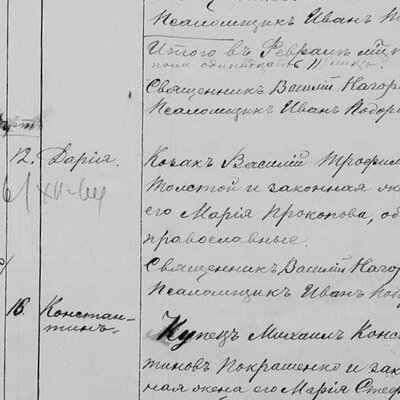 Псаломщикъ Иванъ
Итого въ Февралѣ
пола одинадцать 11 лицъ
Священникъ Василій Нагор
Псаломщикъ Иванъ Подор
12. Дарія.
Козакъ Василій Трофим
Толстой и законная же
его Марія Прокопова, об
православные.
Священникъ Василій Нагор
Псаломщикъ Иванъ Подор
16. Констан-
тинъ.
Купецъ Михаилъ Конс
тиновъ Покрашенко и зак
ная жена его Марія Стеф